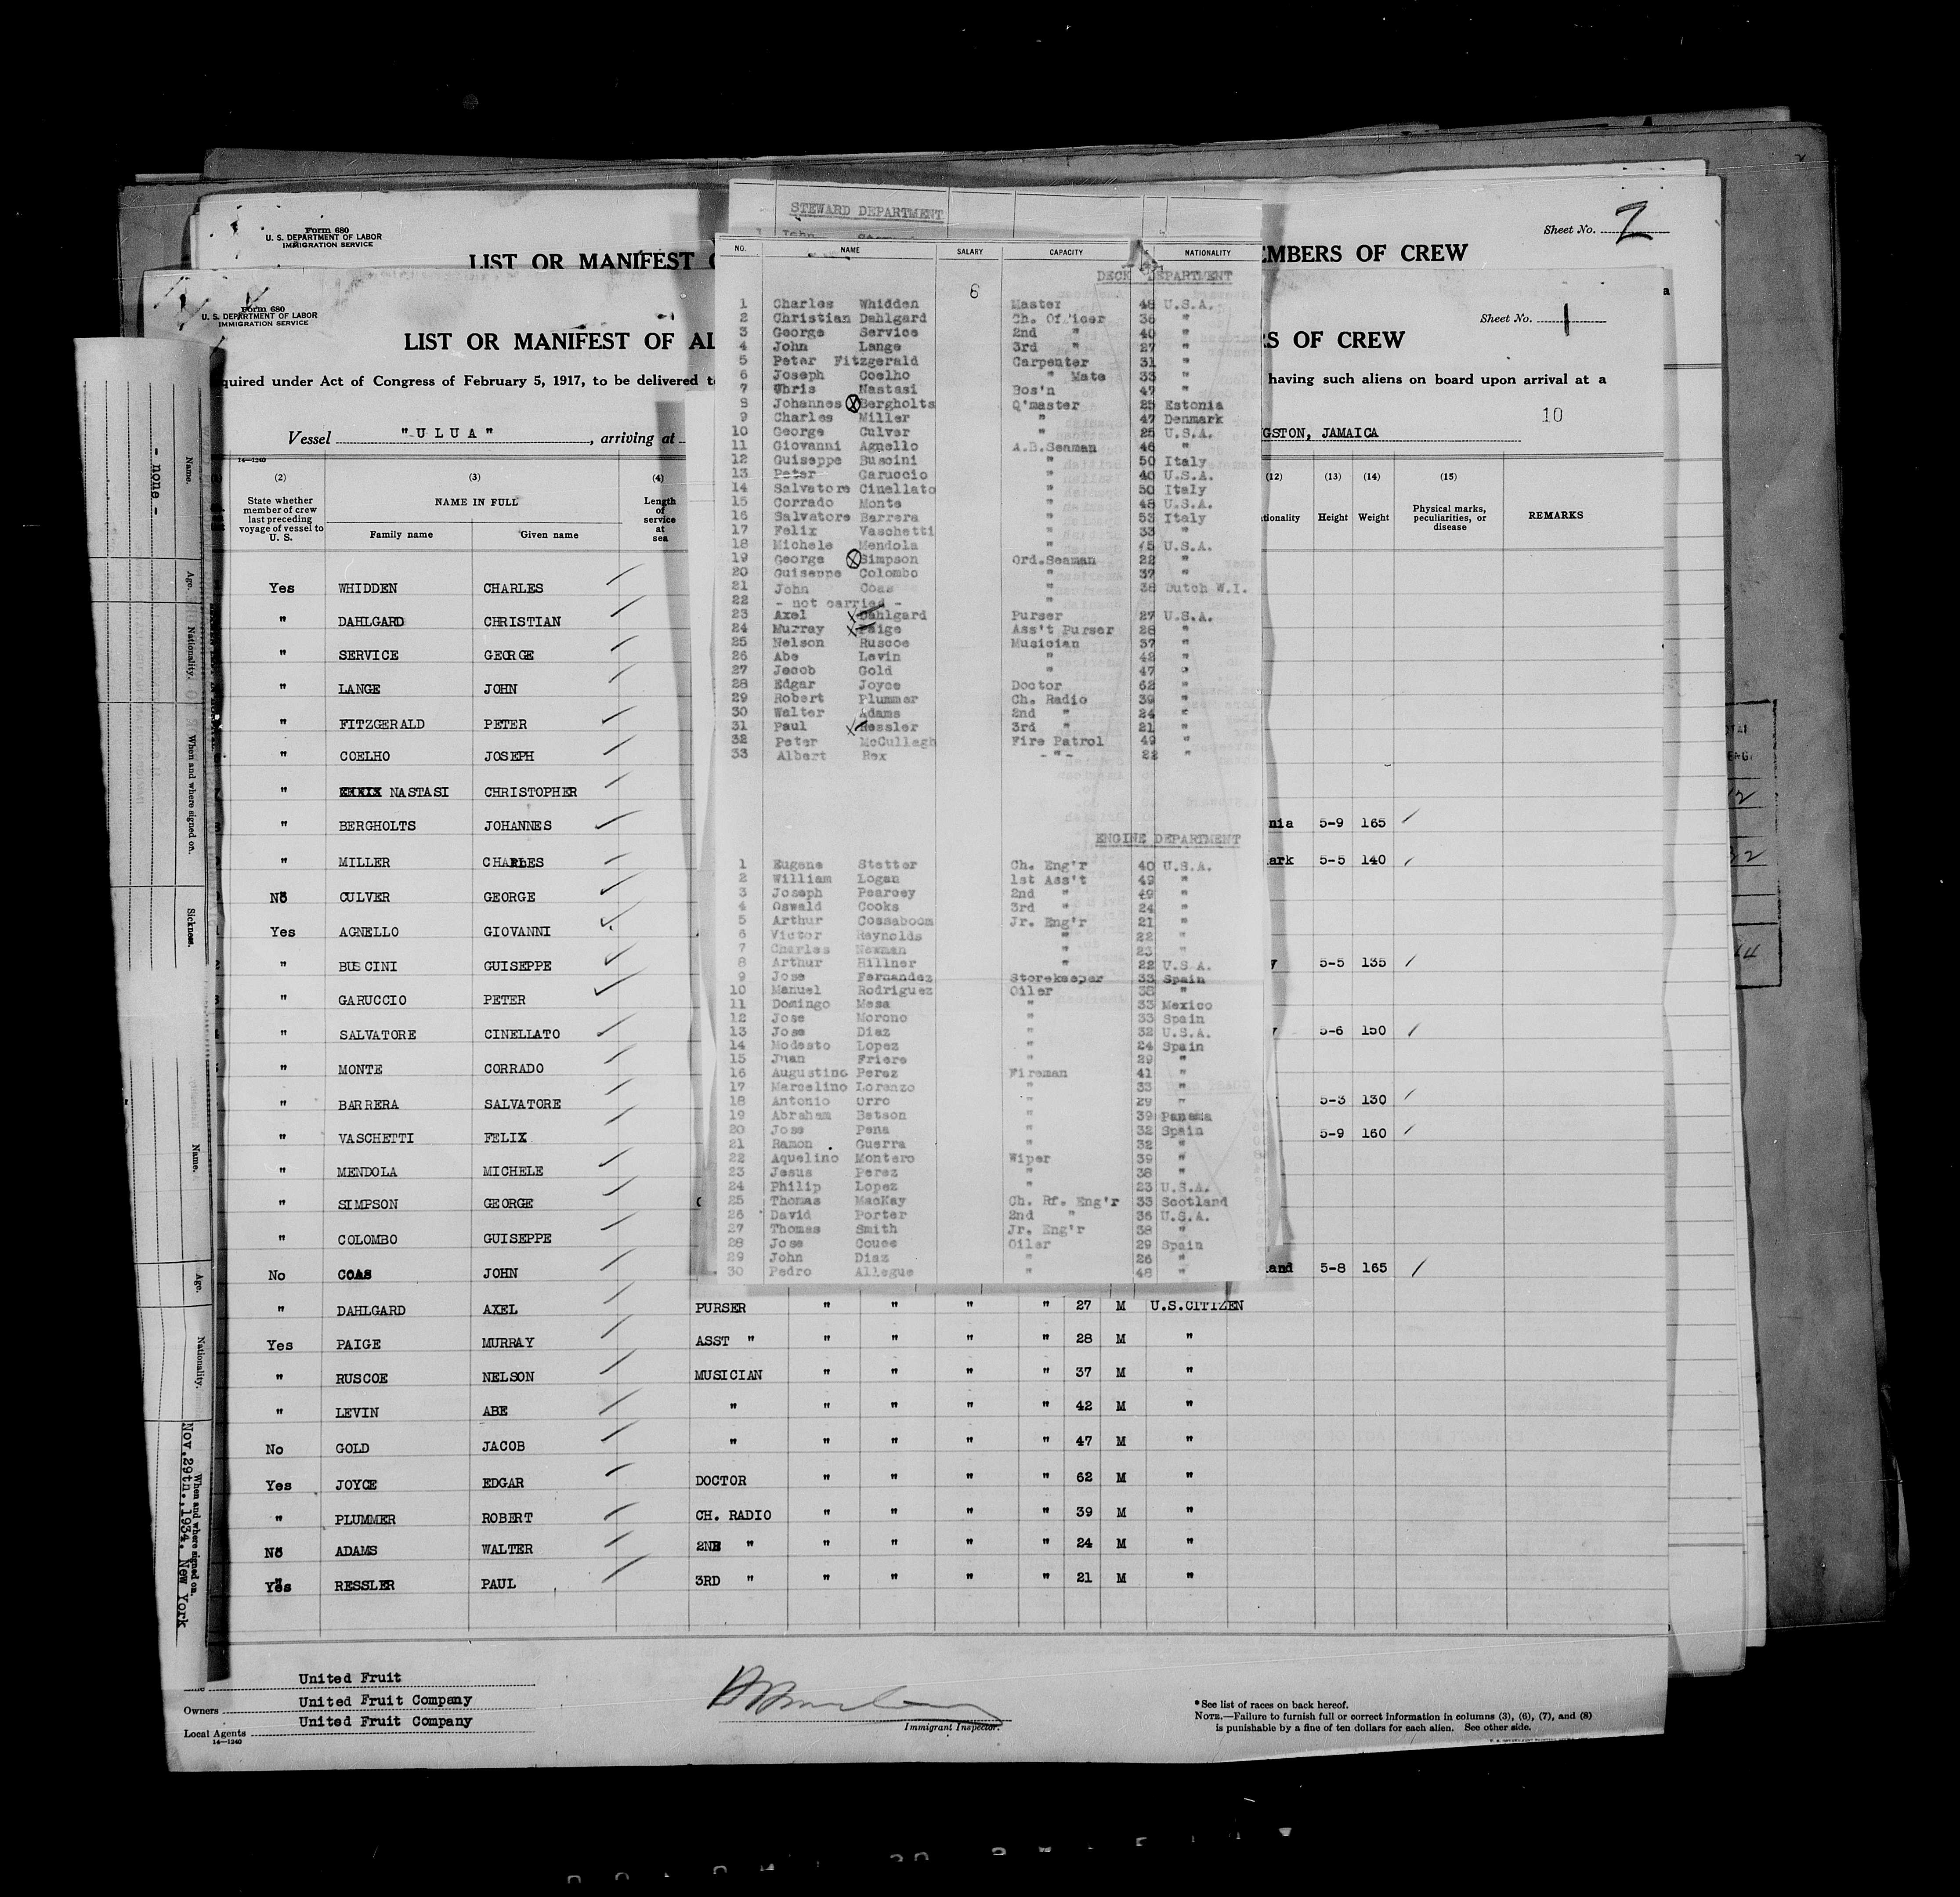 Form 680
U. S. DEPARTMENT OF LABOR
IMMIGRATION SERVICE
LIST OR MANIFEST
MBERS OF CREW
Sheet No. 2
Form 680
U. S. DEPARTMENT OF LABOR
IMMIGRATION SERVICE
LIST OR MANIFEST OF AL
S OF CREW
Sheet No. 1
quired under Act of Congress of February 5, 1917, to be delivered t
having such aliens on board upon arrival at a
10
Vessel "ULUA" , arriving at
GSTON, JAMAICA
14—1240
(2) (3) (4) (12) (13) (14) (15)
State whether member of crew last preceding voyage of vessel to U. S.
NAME IN FULL
Family name Given name
Length of service at sea
tionality Height Weight
Physical marks, peculiarities, or disease
REMARKS
Yes WHIDDEN CHARLES
" DAHLGARD CHRISTIAN
" SERVICE GEORGE
" LANGE JOHN
" FITZGERALD PETER
" COELHO JOSEPH
" NASTASI CHRISTOPHER
" BERGHOLTS JOHANNES nia 5-9 165
" MILLER CHARLES ark 5-5 140
No CULVER GEORGE
Yes AGNELLO GIOVANNI
" BUSCINI GUISEPPE y 5-5 135
" GARUCCIO PETER
" SALVATORE CINELLATO y 5-6 150
" MONTE CORRADO
" BARRERA SALVATORE 5-3 130
" VASCHETTI FELIX 5-9 160
" MENDOLA MICHELE
" SIMPSON GEORGE
" COLOMBO GUISEPPE
No COAS JOHN and 5-8 165
" DAHLGARD AXEL PURSER " " " " 27 M U.S.CITIZEN
Yes PAIGE MURRAY ASST " " " " " 28 M "
" RUSCOE NELSON MUSICIAN " " " " 37 M "
" LEVIN ABE " " " " " 42 M "
No GOLD JACOB " " " " " 47 M "
Yes JOYCE EDGAR DOCTOR " " " " 62 M "
" PLUMMER ROBERT CH. RADIO " " " " 39 M "
No ADAMS WALTER 2ND " " " " " 24 M "
Yes RESSLER PAUL 3RD " " " " " 21 M "
STEWARD DEPARTMENT
NO. NAME SALARY CAPACITY NATIONALITY
DECK DEPARTMENT
6
1 Charles Whidden Master 48 U.S.A.
2 Christian Dahlgard Ch. Officer 36 "
3 George Service 2nd " 40 "
4 John Lange 3rd " 27 "
5 Peter Fitzgerald Carpenter 31 "
6 Joseph Coelho " Mate 33 "
7 Whris Nastasi Bos'n 47 "
8 Johannes Bergholts Q'master 25 Estonia
9 Charles Miller " 47 Denmark
10 George Culver " 25 U.S.A.
11 Giovanni Agnello A.B.Seaman 46 "
12 Guiseppe Buscini " 50 Italy
13 Peter Garuccio " 40 U.S.A.
14 Salvatore Cinellato " 50 Italy
15 Corrado Monte " 48 U.S.A.
16 Salvatore Barrera " 53 Italy
17 Felix Vaschetti " 33 "
18 Michele Mendola " 45 U.S.A.
19 George Simpson Ord.Seaman 22 "
20 Guiseppe Colombo " 37 "
21 John Coas " 38 Dutch W.I.
22 - not carried - "
23 Axel Dahlgard Purser 27 U.S.A.
24 Murray Paige Ass't Purser 28 "
25 Nelson Ruscoe Musician 37 "
26 Abe Levin " 42 "
27 Jacob Gold " 47 "
28 Edgar Joyce Doctor 62 "
29 Robert Plummer Ch. Radio 39 "
30 Walter Adams 2nd " 24 "
31 Paul Ressler 3rd " 21 "
32 Peter McCullagh Fire Patrol 49 "
33 Albert Rex -"- 22 "
ENGINE DEPARTMENT
1 Eugene Stetter Ch. Eng'r 40 U.S.A.
2 William Logan 1st Ass't 49 "
3 Joseph Pearcey 2nd " 49 "
4 Oswald Cooks 3rd " 24 "
5 Arthur Cossaboom Jr. Eng'r 21 "
6 Victor Reynolds " 22 "
7 Charles Newman " 23 "
8 Arthur Hillner " 22 U.S.A.
9 Jose Fernandez Storekeeper 33 Spain
10 Manuel Rodriguez Oiler 38 "
11 Domingo Mesa " 33 Mexico
12 Jose Morono " 33 Spain
13 Jose Diaz " 32 U.S.A.
14 Modesto Lopez " 24 Spain
15 Juan Friere " 29 "
16 Augustino Perez Fireman 41 "
17 Marcelino Lorenzo " 33 "
18 Antonio Orro " 29 "
19 Abraham Betson " 39 Panama
20 Jose Pena " 32 Spain
21 Ramon Guerra " 32 "
22 Aquelino Montero Wiper 39 "
23 Jesus Perez " 38 "
24 Philip Lopez " 23 U.S.A.
25 Thomas MacKay Ch. Rf. Eng'r 33 Scotland
26 David Porter 2nd " 36 U.S.A.
27 Thomas Smith Jr. Eng'r 38 "
28 Jose Couce Oiler 29 Spain
29 John Diaz " 26 "
30 Pedro Allegue " 48 "
Name.
- none -
Age.
Nationality.
When and where signed on.
Sickness.
Name.
Age.
Nationality.
When and where signed on.
Nov.29th.,1934. New York
United Fruit
Owners United Fruit Company
Local Agents United Fruit Company
14—1240
Immigrant Inspector.
*See list of races on back hereof.
NOTE.—Failure to furnish full or correct information in columns (3), (6), (7), and (8)
is punishable by a fine of ten dollars for each alien. See other side.